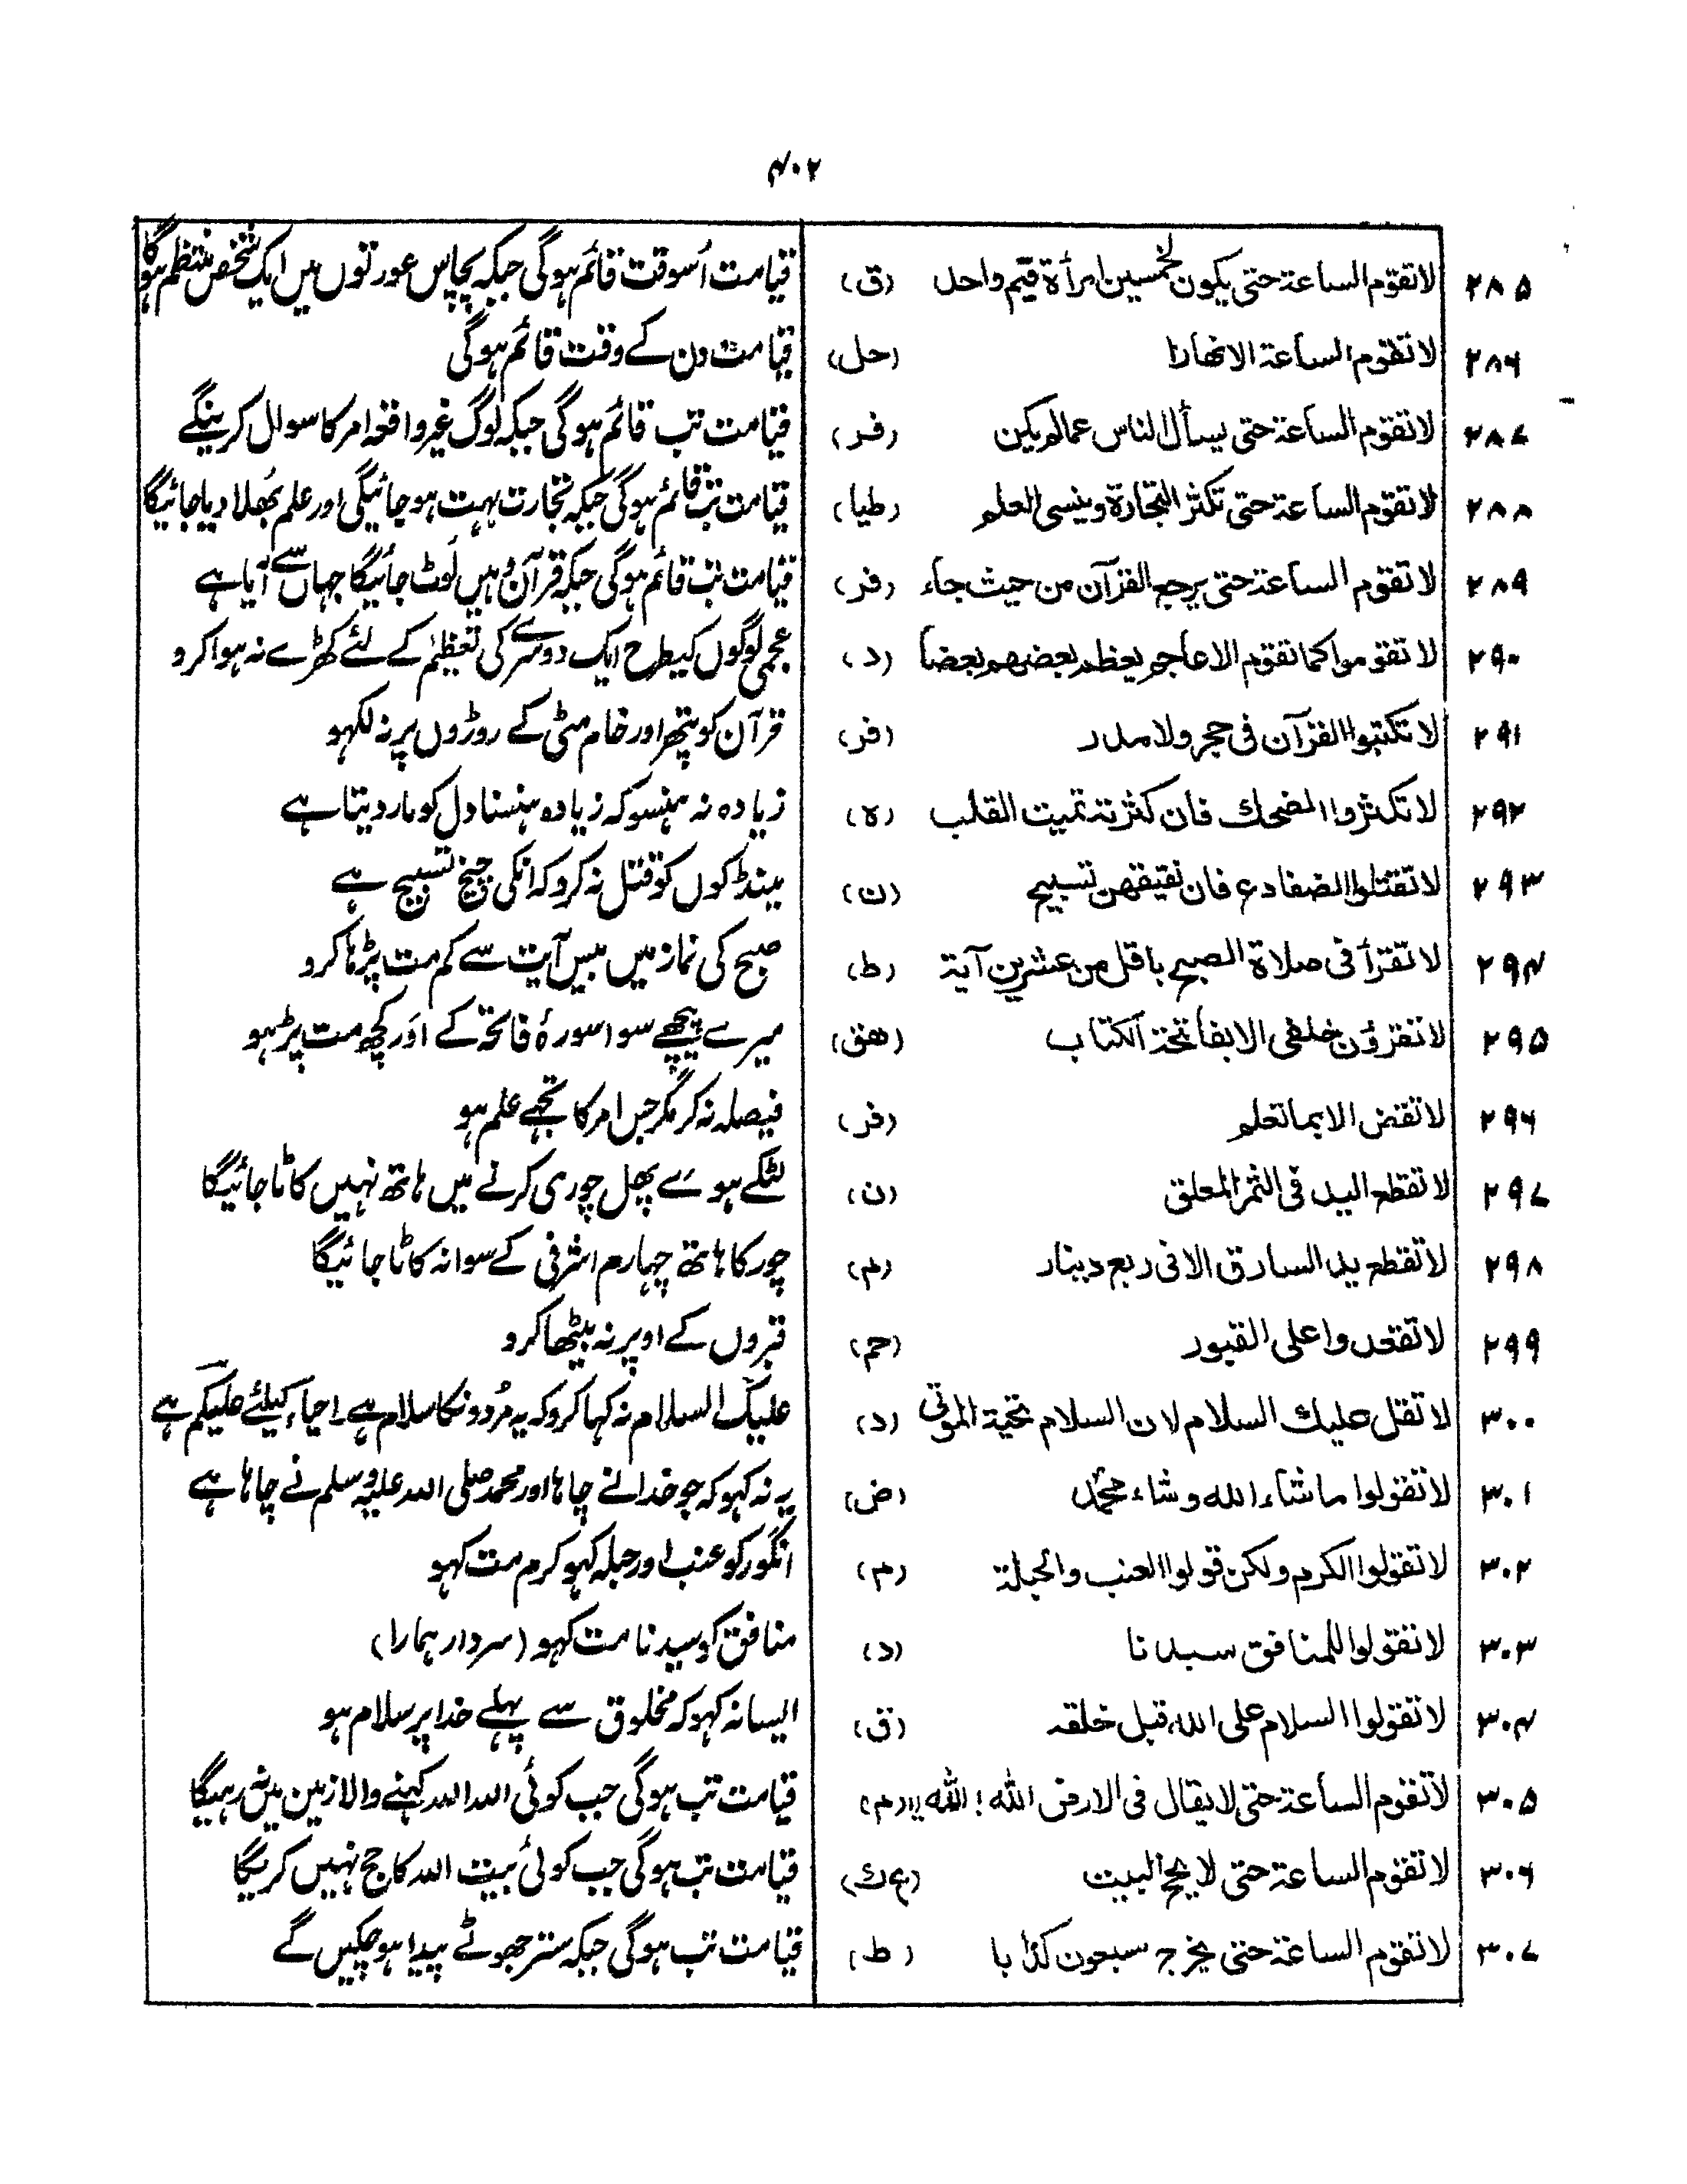 ۴۰۲
۲۸۵ لا تقوم الساعة حتى يكون لخمسين امرأة قيم واحد (ق) قیامت اُسوقت قائم ہوگی جبکہ پچاس عورتوں میں ایک شخص منتظم ہوگا
۲۸۶ لا تقوم الساعة الا نهارا (حل) قیامت دن کے وقت قائم ہوگی
۲۸۷ لا تقوم الساعة حتى يسأل الناس عما لم يكن (فر) قیامت تب قائم ہوگی جبکہ لوگ غیر واقعہ امر کا سوال کرینگے
۲۸۸ لا تقوم الساعة حتى تكثر التجارة وينسى العلم (طيا) قیامت تب قائم ہوگی جبکہ تجارت بہت ہو جائیگی اور علم بُھلا دیا جائیگا
۲۸۹ لا تقوم الساعة حتى يرجع القرآن من حيث جاء (فر) قیامت تب قائم ہوگی جبکہ قرآن وہیں لَوٹ جائیگا جہاں سے آیا ہے
۲۹۰ لا تقوموا كما تقوم الاعاجم يعظم بعضهم بعضا (د) عجمی لوگوں کیطرح ایک دوسرے کی تعظیم کے لئے کھڑے نہ ہوا کرو
۲۹۱ لا تكتبوا القرآن فى حجر ولا مدر (فر) قرآن کو پتھر اور خام مٹی کے روڑوں پر نہ لکھو
۲۹۲ لا تكثروا الضحك فان كثرته تميت القلب (ه) زیادہ نہ ہنسو کہ زیادہ ہنسنا دل کو مار دیتا ہے
۲۹۳ لا تقتلوا الضفادع فان نقيقهن تسبيح (ن) مینڈکوں کو قتل نہ کرو کہ انکی چیخ تسبیح ہے
۲۹۴ لا تقرأ فى صلاة الصبح باقل من عشرين آية (ط) صبح کی نماز میں بیس آیت سے کم مت پڑھا کرو
۲۹۵ لا تقرؤن خلفى الا بفاتحة الكتاب (هق) میرے پیچھے سوا سورۂ فاتحہ کے اَور کچھ مت پڑہو
۲۹۶ لا تقض الا بما تعلم (فر) فیصلہ نہ کر مگر جس امر کا تجھے علم ہو
۲۹۷ لا تقطع اليد فى الثمر المعلق (ن) لٹکے ہوے پھل چوری کرنے میں ہاتھ نہیں کاٹا جائیگا
۲۹۸ لا تقطع يد السارق الا فى ربع دينار (م) چور کا ہاتھ چہارم اشرفی کے سوا نہ کاٹا جائیگا
۲۹۹ لا تقعدوا على القبور (حم) قبروں کے اوپر نہ بیٹھا کرو
۳۰۰ لا تقل عليك السلام لان السلام تحية الموتى (د) علیک السلام نہ کہا کرو کہ یہ مُردونکا سلام ہے۔ احیاء کیلئے علیکم ہے
۳۰۱ لا تقولوا ما شاء الله وشاء محمد (ض) یہ نہ کہو کہ جو خدا نے چاہا اور محمد صلی اللہ علیہ وسلم نے چاہا ہے
۳۰۲ لا تقولوا الكرم ولكن قولوا العنب والحبلة (م) انگور کو عنب اور حبلہ کہو کرم مت کہو
۳۰۳ لا تقولوا للمنافق سيدنا (د) منافق کو سیدنا مت کہو (سردار ہمارا)
۳۰۴ لا تقولوا السلام على الله قبل خلقه (ق) ایسا نہ کہو کہ مخلوق سے پہلے خدا پر سلام ہو
۳۰۵ لا تقوم الساعة حتى لا يقال فى الارض الله! الله!! (م) قیامت تب ہوگی جب کوئی اللہ اللہ کہنے والا زمین میں نہ رہیگا
۳۰۶ لا تقوم الساعة حتى لا يحج البيت (ع ك) قیامت تب ہوگی جب کوئی بیت اللہ کا حج نہیں کریگا
۳۰۷ لا تقوم الساعة حتى يخرج سبعون كذابا (ط) قیامت تب ہوگی جبکہ ستر جھوٹے پیدا ہو چکیں گے